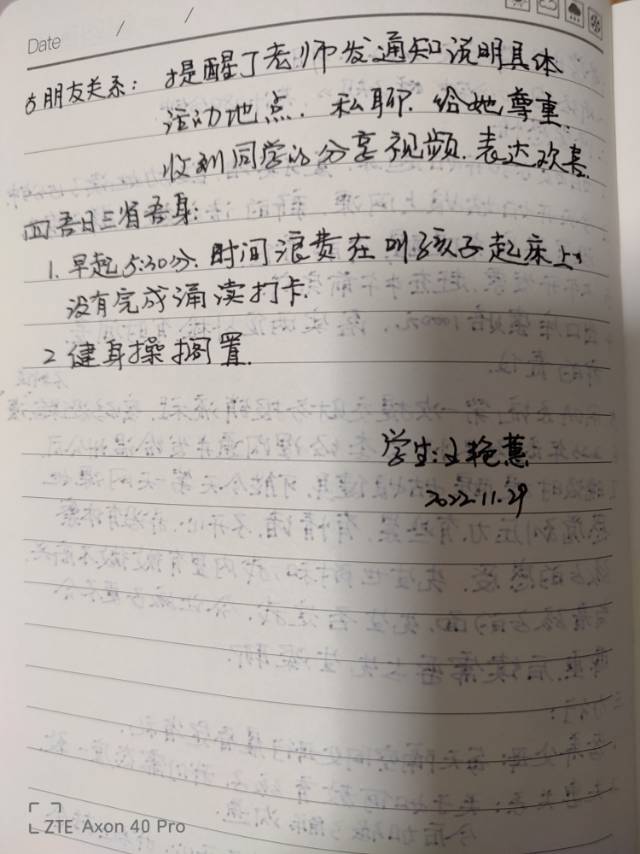 Date / /
5 朋友关系：提醒了老师发通知说明具体
活动地点. 私聊. 给她尊重.
收到同学的分享视频. 表达欢喜.
四 吾日三省吾身：
1. 早起5:30分. 时间浪费在叫孩子起床上，
没有完成诵读打卡.
2 健身操搁置.
学生：王艳蕙
2022.11.29
ZTE Axon 40 Pro